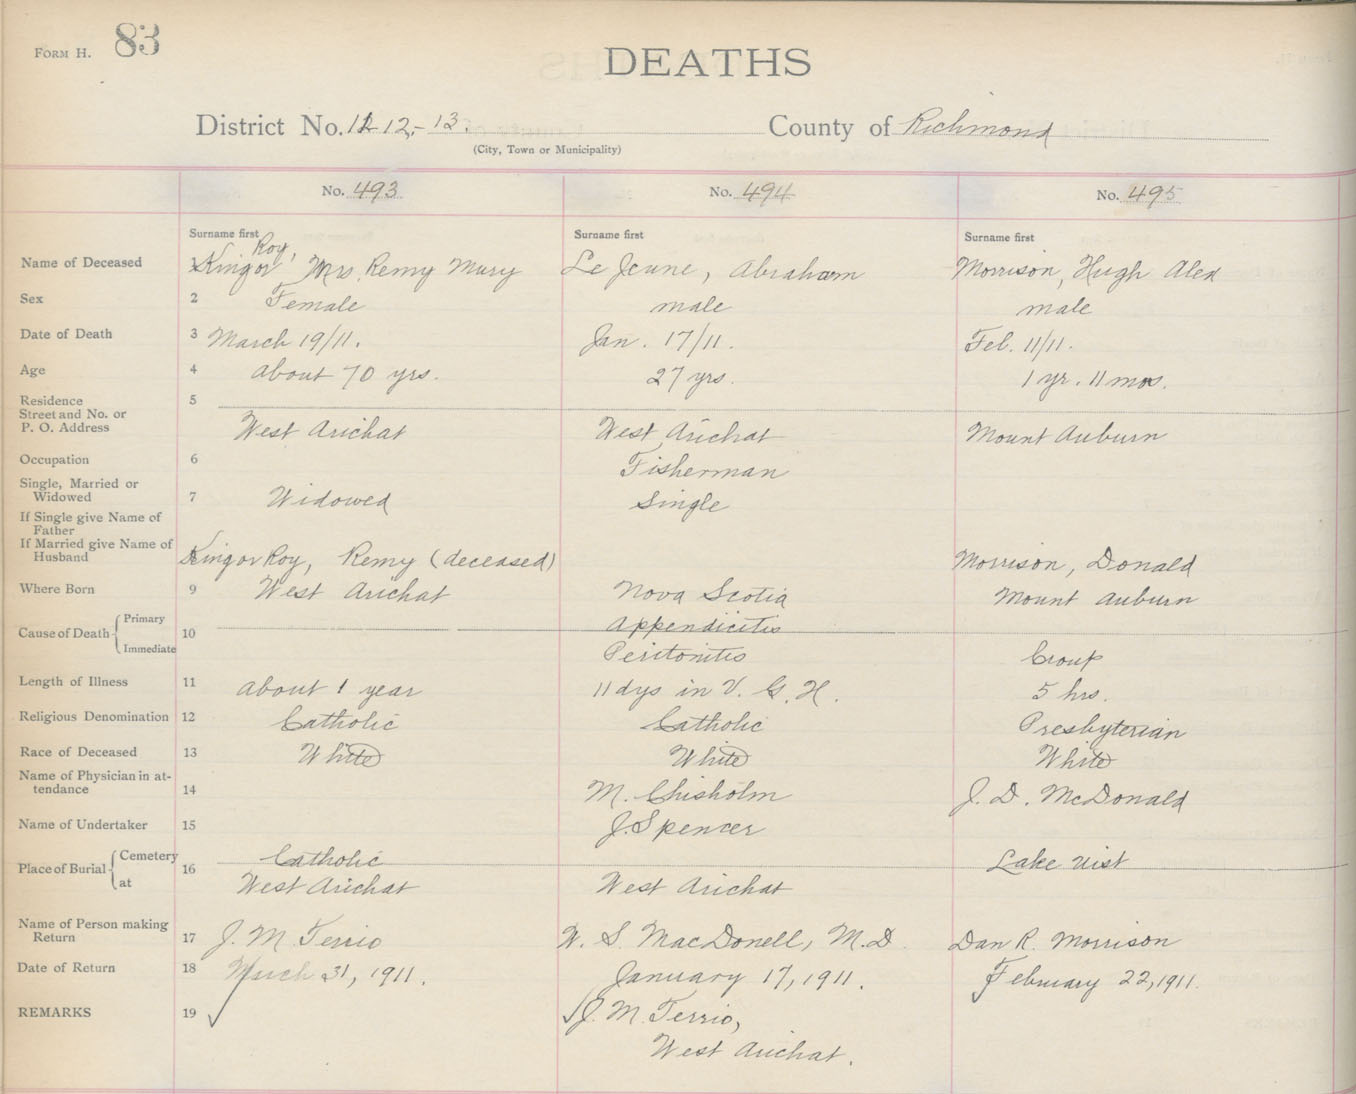 FORM H. 83
DEATHS
District No. 12 12,-13. County of Richmond
(City, Town or Municipality)
No. 493 No. 494 No. 495
Surname first Surname first Surname first
Roy,
Name of Deceased 1 Kingor Mrs. Remy Mary Le Jeune, Abraham Morrison, Hugh Alex
Sex 2 Female male male
Date of Death 3 March 19/11. Jan. 17/11. Feb. 11/11.
Age 4 about 70 yrs. 27 yrs. 1 yr. 11 mos.
Residence 5
Street and No. or
P. O. Address West Arichat West Arichat Mount Auburn
Occupation 6 Fisherman
Single, Married or
Widowed 7 Widowed Single
If Single give Name of
Father
If Married give Name of
Husband Kingor Roy, Remy (deceased) Morrison, Donald
Where Born 9 West Arichat Nova Scotia Mount Auburn
Cause of Death Primary 10 Appendicitis
Immediate Peritonitis Croup
Length of Illness 11 about 1 year 11 dys in V. G. H. 5 hrs.
Religious Denomination 12 Catholic Catholic Presbyterian
Race of Deceased 13 White White White
Name of Physician in at-
tendance 14 M. Chisholm J. D. McDonald
Name of Undertaker 15 J. Spencer
Place of Burial Cemetery 16 Catholic Lake Uist
at West Arichat West Arichat
Name of Person making
Return 17 J. M. Terrio W. S. MacDonell, M.D. Dan R. Morrison
Date of Return 18 March 31, 1911. January 17, 1911. February 22, 1911.
REMARKS 19 ✓ ✓ J. M. Terrio,
West Arichat.